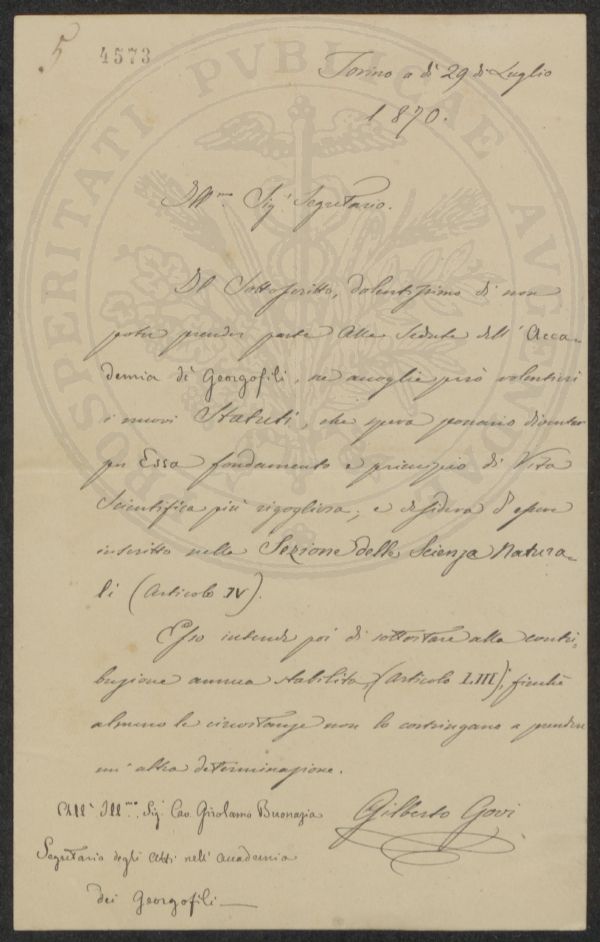 5
4573
PROSPERITATI PVBLICAE AVGENDAE
Torino a dì 29 di Luglio
1870.
Ill.mo Sig.r Segretario.
Il Sottoscritto, dolentissimo di non
poter prender parte alle Sedute dell'Acca-
demia de' Georgofili, ne accoglie però volentieri
i nuovi Statuti, che spera ponno diventar
per Essa fondamento e principio di Vita
Scientifica più rigogliosa; e desidera d'essere
inscritto nella Sezione delle Scienze Natura-
li (Articolo IV).
Esso intende poi di sottostare alla contri-
buzione annua stabilita, (Articolo LIII), finché
almeno le circostanze non lo costringano a prendere
un'altra determinazione.
All' Ill.mo Sig. Cav. Girolamo Buonazia
Gilberto Govi
Segretario degli Atti nell'Accademia
dei Georgofili —